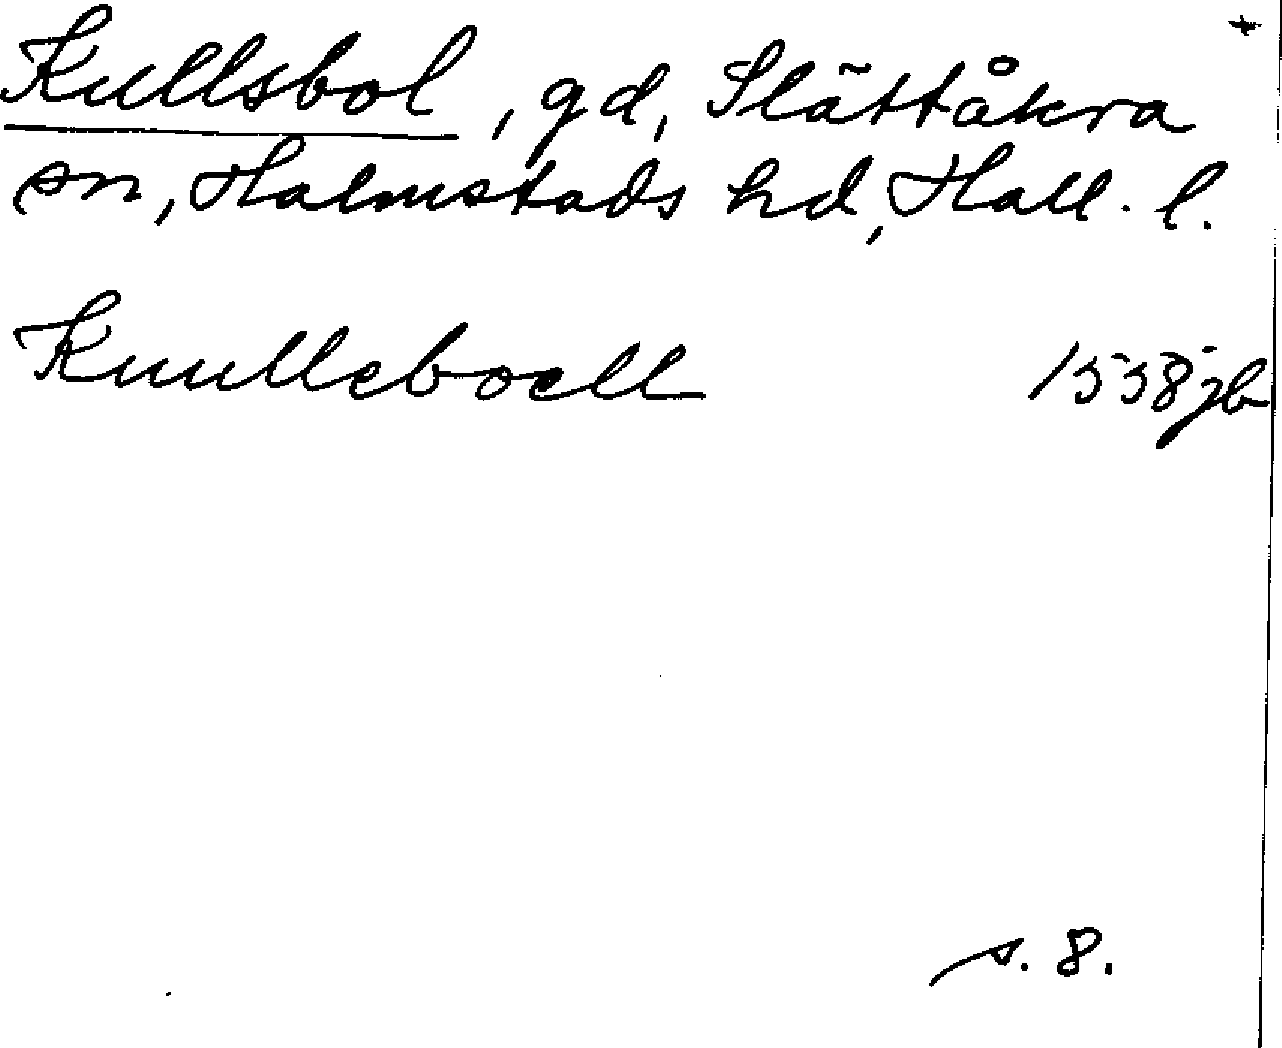 +
Kullsbol, gd, Slättåkra
sn, Halmstads hd, Hall. l.
Kuulleboell 1538 jb
s. 8.